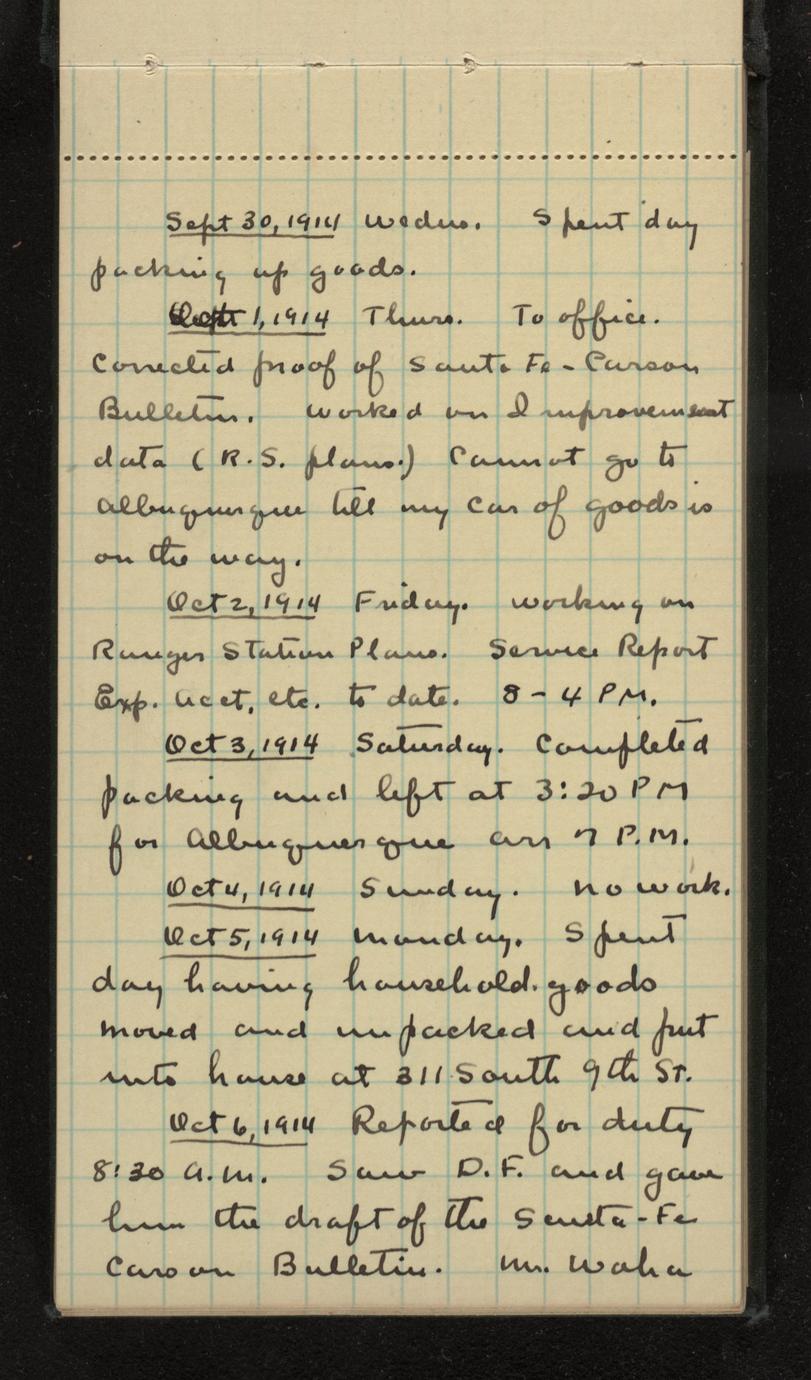 Sept 30, 1914 Wednes. Spent day
packing up goods.
Oct 1, 1914 Thurs. To office.
Corrected proof of Santa Fe - Carson
Bulletin. Worked on Improvement
data (R.S. plans.) Cannot go to
Albuquerque till my car of goods is
on the way.
Oct 2, 1914 Friday. Working on
Ranger Station Plans. Service Report
Exp. Acct, etc. to date. 8 - 4 PM.
Oct 3, 1914 Saturday. Completed
packing and left at 3:20 PM
for Albuquerque arr 7 P.M.
Oct 4, 1914 Sunday. No work.
Oct 5, 1914 Monday. Spent
day having household goods
moved and unpacked and put
into house at 311 South 9th St.
Oct 6, 1914 Reported for duty
8:30 A.M. Saw D.F. and gave
him the draft of the Santa-Fe
Carson Bulletin. Mr. Waha